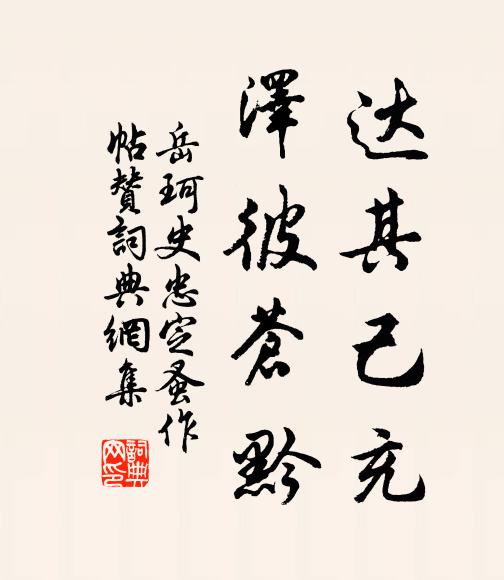 达其已充
澤彼蒼黔
岳珂史忠定蚤作
帖赞詞典網集
詞典网印